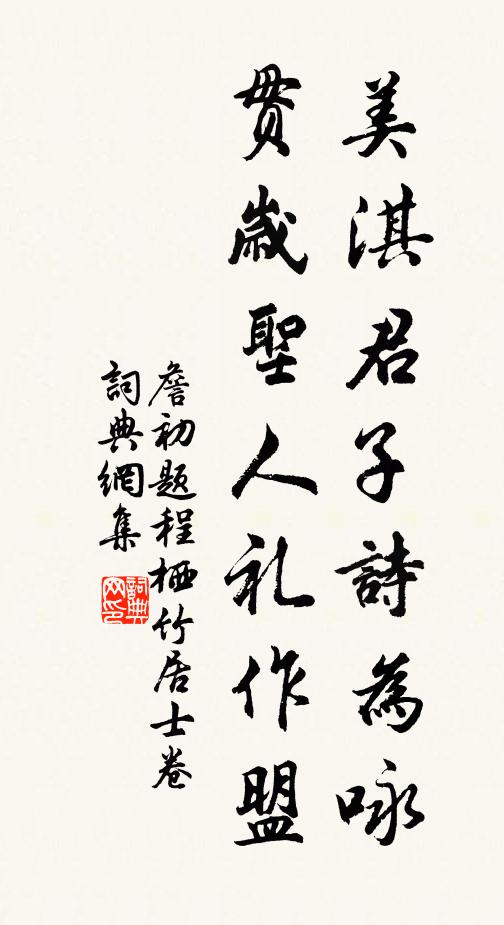 美淇君子詩為咏
贯歲聖人礼作盟
詹初題程栖竹居士卷
詞典網集
詞典